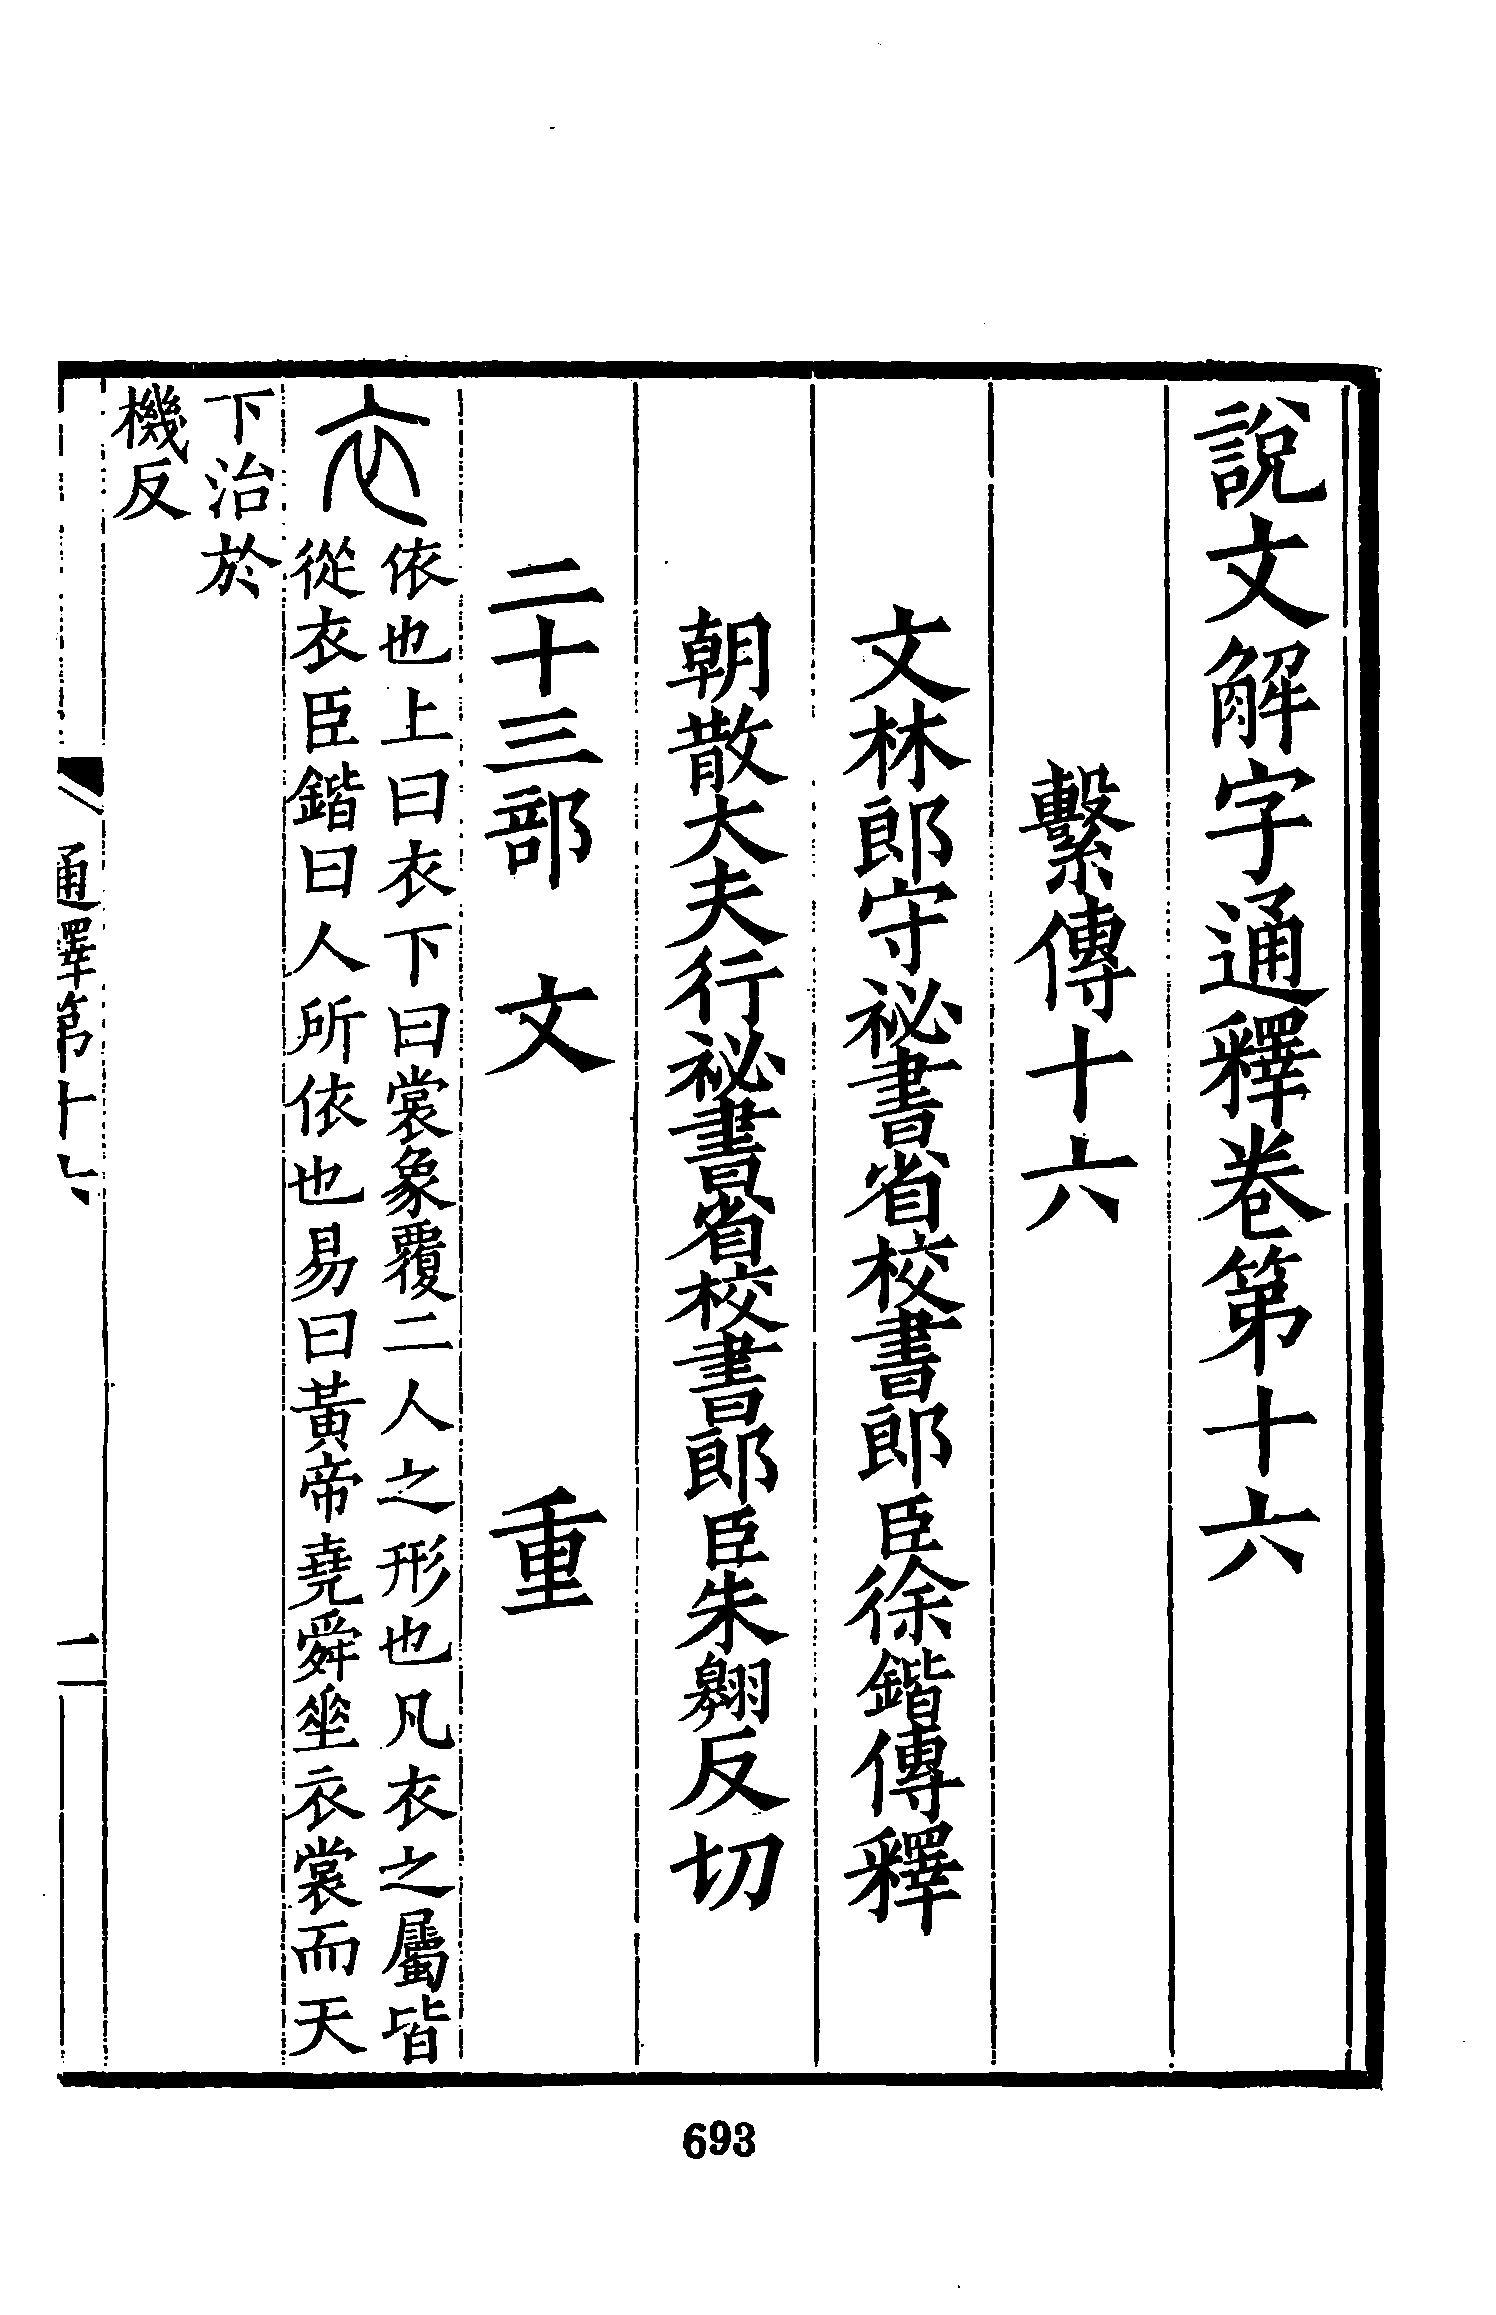 說文解字通釋卷第十六
繫傳十六
文林郎守祕書省校書郎臣徐鍇傳釋
朝散大夫行祕書省校書郎臣朱翱反切
二十三部 文 重
衣
依也上曰衣下曰裳象覆二人之形也凡衣之屬皆
從衣臣鍇曰人所依也易曰黃帝堯舜垂衣裳而天
下治於
機反
通釋第十六
一
693